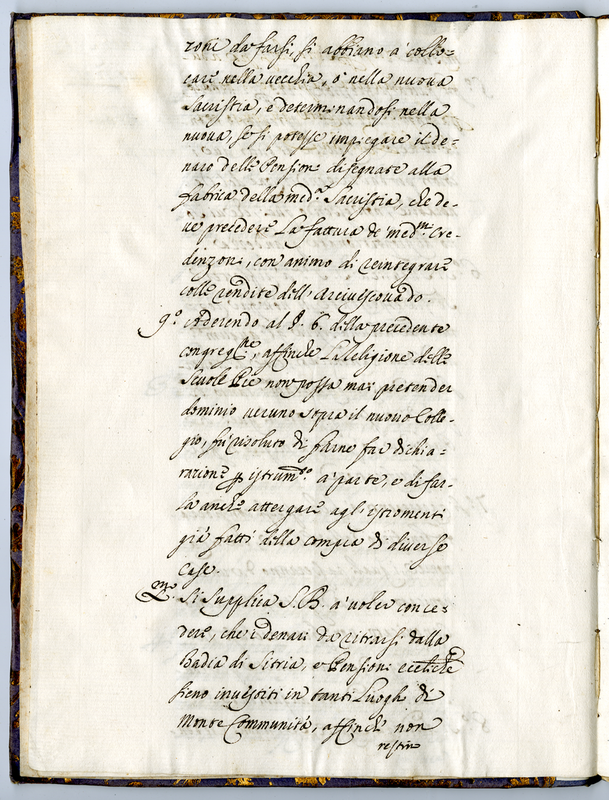 zoni da farsi, si abbiano à collo=
care nella vecchia, ò nella nuova
Sacristia, e determinandosi nella
nuova, se si potesse impiegare il de=
naro delle Pensioni disegnate alla
fabrica della med.ª Sacristia, che de-
ve precedere la fattura de' med.mi Cre-
denzoni, con animo di reintegrare
colle rendite dell'Arcivescovado.
9.º aderendo al §. 6. della precedente
congreg.ne, affinche la Religione delle
Scuole Pie non possa mai pretender
dominio veruno sopra il nuovo Colle-
gio, fù risoluto di farne far dichia=
razione p istrum.to à parte, e di far-
la anche attergare agl'istromenti
già fatti della compra di diverse
case.
X.mo Si supplica S. B. à voler conce=
dere, che i denari da ritrarsi dalla
Badia di Sitria, e Pensioni eccl.che
sieno investiti in tanti Luoghi di
Monte Communità, affinche non
restino